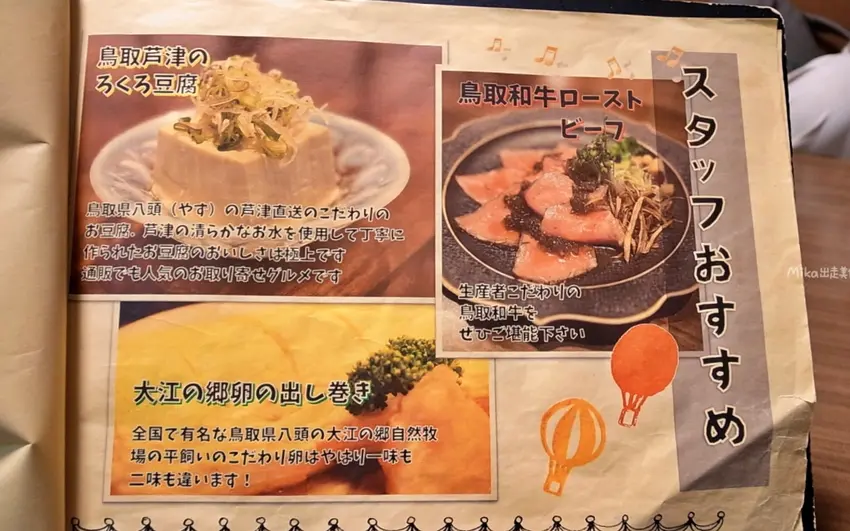 スタッフおすすめ
鳥取芦津の
ろくろ豆腐
鳥取県八頭（やず）の芦津直送のこだわりの
お豆腐、芦津の清らかなお水を使用して丁寧に
作られたお豆腐のおいしさは極上です
通販でも人気のお取り寄せグルメです
鳥取和牛ロースト
ビーフ
生産者こだわりの
鳥取和牛を
ぜひご堪能下さい
大江の郷卵の出し巻き
全国で有名な鳥取県八頭の大江の郷自然牧
場の平飼いのこだわり卵はやはり一味も
二味も違います！
Mika出走美